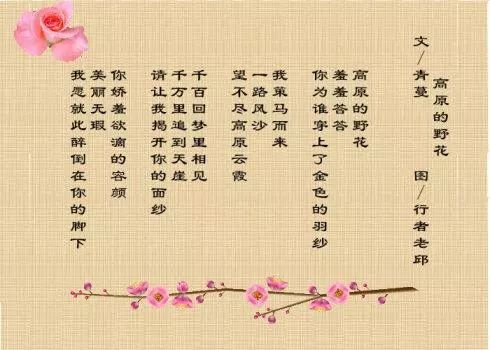 高原的野花
文/青蔓 图/行者老邱
高原的野花
羞羞答答
你为谁穿上了金色的羽纱
我策马而来
一路风沙
望不尽高原云霞
千百回梦里相见
千万里追到天崖
请让我揭开你的面纱
你娇羞欲滴的容颜
美丽无瑕
我忽就此醉倒在你的脚下